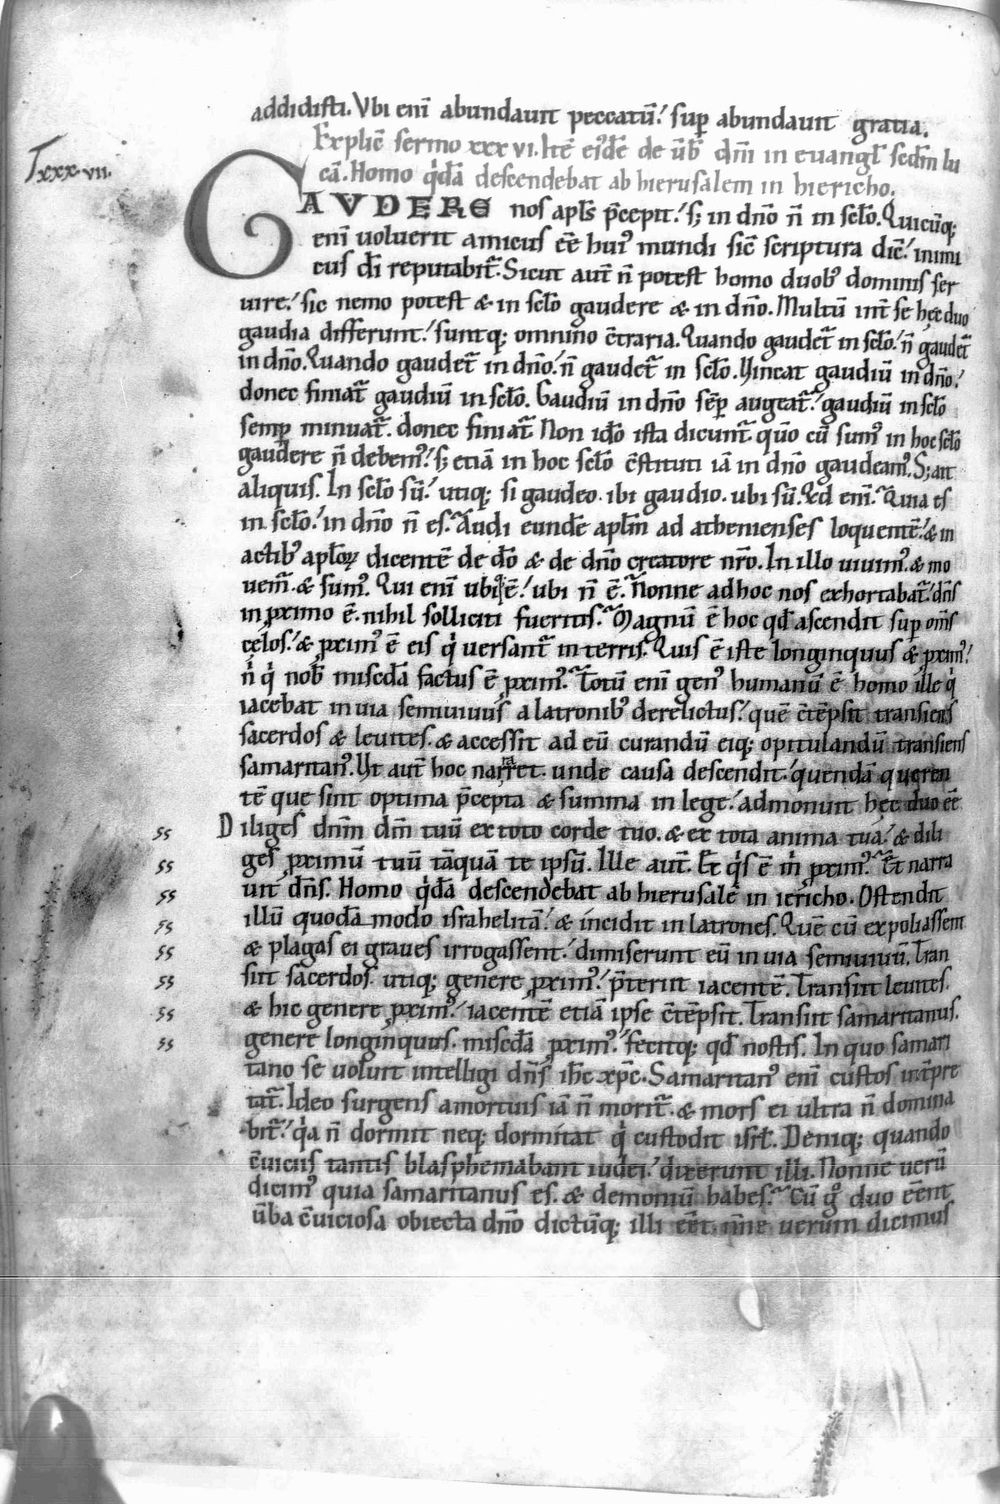 addidisti. Vbi eni̅ abundauit peccatu̅.' sup̲ abundauit gratia.
Explic̅ sermo xxx vi. Ite̅ eiꝰde̅ de u̅b̅ dn̅i in euangl̅ scd̅m lu
Txxx·vii.
ca̅. Homo q̇da̅ descendebat ab hierusalem in hiericho.
GAVDERE nos apl̅s p̅cepit.' s; in dn̅o n̅ in sc̅lo. Quicu̅q;
eni̅ uoluerit amicus e̅e huiꝰ mundi sic̅ scriptura dic̅.' inimi
cus di̅ reputabit̅. Sicut aut̅ n̅ potest homo duobꝰ dominis ser
uire.' sic nemo potest & in sc̅lo gaudere & in dn̅o. Multu̅ int̅ se hec duo
gaudia differunt.' suntq; omnino c̅traria. Quando gaudet̅ in sc̅lo.' n̅ gaudet̅
in dn̅o. Quando gaudet̅ in dn̅o.' n̅ gaudet̅ in sc̅lo. Vincat gaudiu̅ in dn̅o.'
donec finiat̅ gaudiu̅ in sc̅lo. Gaudiu̅ in dn̅o sep̲̅ augeat̅.' gaudiu̅ in sc̅lo
semp̲ minuat̅. donec finiat̅. Non ido̅ ista dicunt̅. quo̅ cu̅ sumꝰ in hoc sc̅lo
gaudere n̅ debemꝰ.' s; etia̅ in hoc sc̅lo c̅stituti ia̅ in dn̅o gaudeamꝰ. S; ait
aliquis. In sc̅lo su̅.' utiq; si gaudeo. ibi gaudio. ubi su̅. Qd eni̅. Quia es
in sc̅lo.' in dn̅o n̅ es. Audi eunde̅ apl̅m ad athenienses loquente̅.' & in
actibꝰ apl̅oꝝ dicente̅ de do̅ & de dn̅o creatore nr̅o. In illo uiuimꝰ. & mo
uem̅. & sumꝰ. Qui eni̅ ubiq; e̅.' ubi n̅ e̅. Nonne ad hoc nos exhortabat̅.' dn̅s
in p̲ximo e̅. nihil solliciti fueritis. Magnu̅ e̅ hoc qd̅ ascendit sup̲ om̅s
celos.' & p̲ximꝰ e̅ eis q̇ uersant̅ in terris. Quis e̅ iste longinquus & p̲ximꝰ.'
n̅ q̇ nob̅ mis̅cda̅ factus e̅ p̲ximꝰ. Totu̅ eni̅ genꝰ humanu̅ e̅ homo ille q̇
iacebat in uia semiuiuus a latronibꝰ derelictus.' que̅ c̅te̅psit transiens
sacerdos & leuites. & accessit ad eu̅ curandu̅ eiq; opitulandu̅ transiens
samaritanꝰ. Vt aut̅ hoc narraret. unde causa descendit.' quenda̅ queren
te̅ que sint optima p̅cepta & summa in lege.' admonuit hec duo e̅e
ss Diliges dn̅m dm̅ tuu̅ ex toto corde tuo. & ex tota anima tua.' & dili
ss ges p̲ximu̅ tuu̅ ta̅qua̅ te ipsu̅. Ille aut̅. Et q̇s e̅ m̊ p̲ximꝰ. Et narra
ss uit dn̅s. Homo q̇da̅ descendebat ab hierusale̅ in iericho. Ostendit
ss illu̅ quoda̅ modo israhelita̅.' & incidit in latrones. Que̅ cu̅ expoliassent
ss & plagas ei graues irrogassent.' dimiserunt eu̅ in uia semiuiuu̅. Tran
ss siit sacerdos. utiq; genere p̲ximꝰ.' p̅teriit iacente̅. Transiit leuites.
ss & hic genere p̲ximꝰ.' iacente̅ etia̅ ipse c̅te̅psit. Transiit samaritanus.
ss genere longinquus. mis̅cda̅ p̲ximꝰ.' fecitq; qd̅ nostis. In quo samari
tano se uoluit intelligi dn̅s ih̅c xp̅c. Samaritanꝰ eni̅ custos int̅pre
tat̅. Ideo surgens a mortuis ia̅ n̅ morit̅. & mors ei ultra n̅ domina
bit̅.' q̇a n̅ dormit neq; dormitat q̇ custodit isrl̅. Deniq; quando
c̅uiciis tantis blasphemabant iudei.' dixerunt illi. Nonne ueru̅
dicimꝰ quia samaritanus es. & demoniu̅ habes. Cu̅ g̊ duo e̅ent
u̅ba c̅uiciosa obiecta dn̅o dictu̅q; illi e̅et. nn̅e uerum dicimus